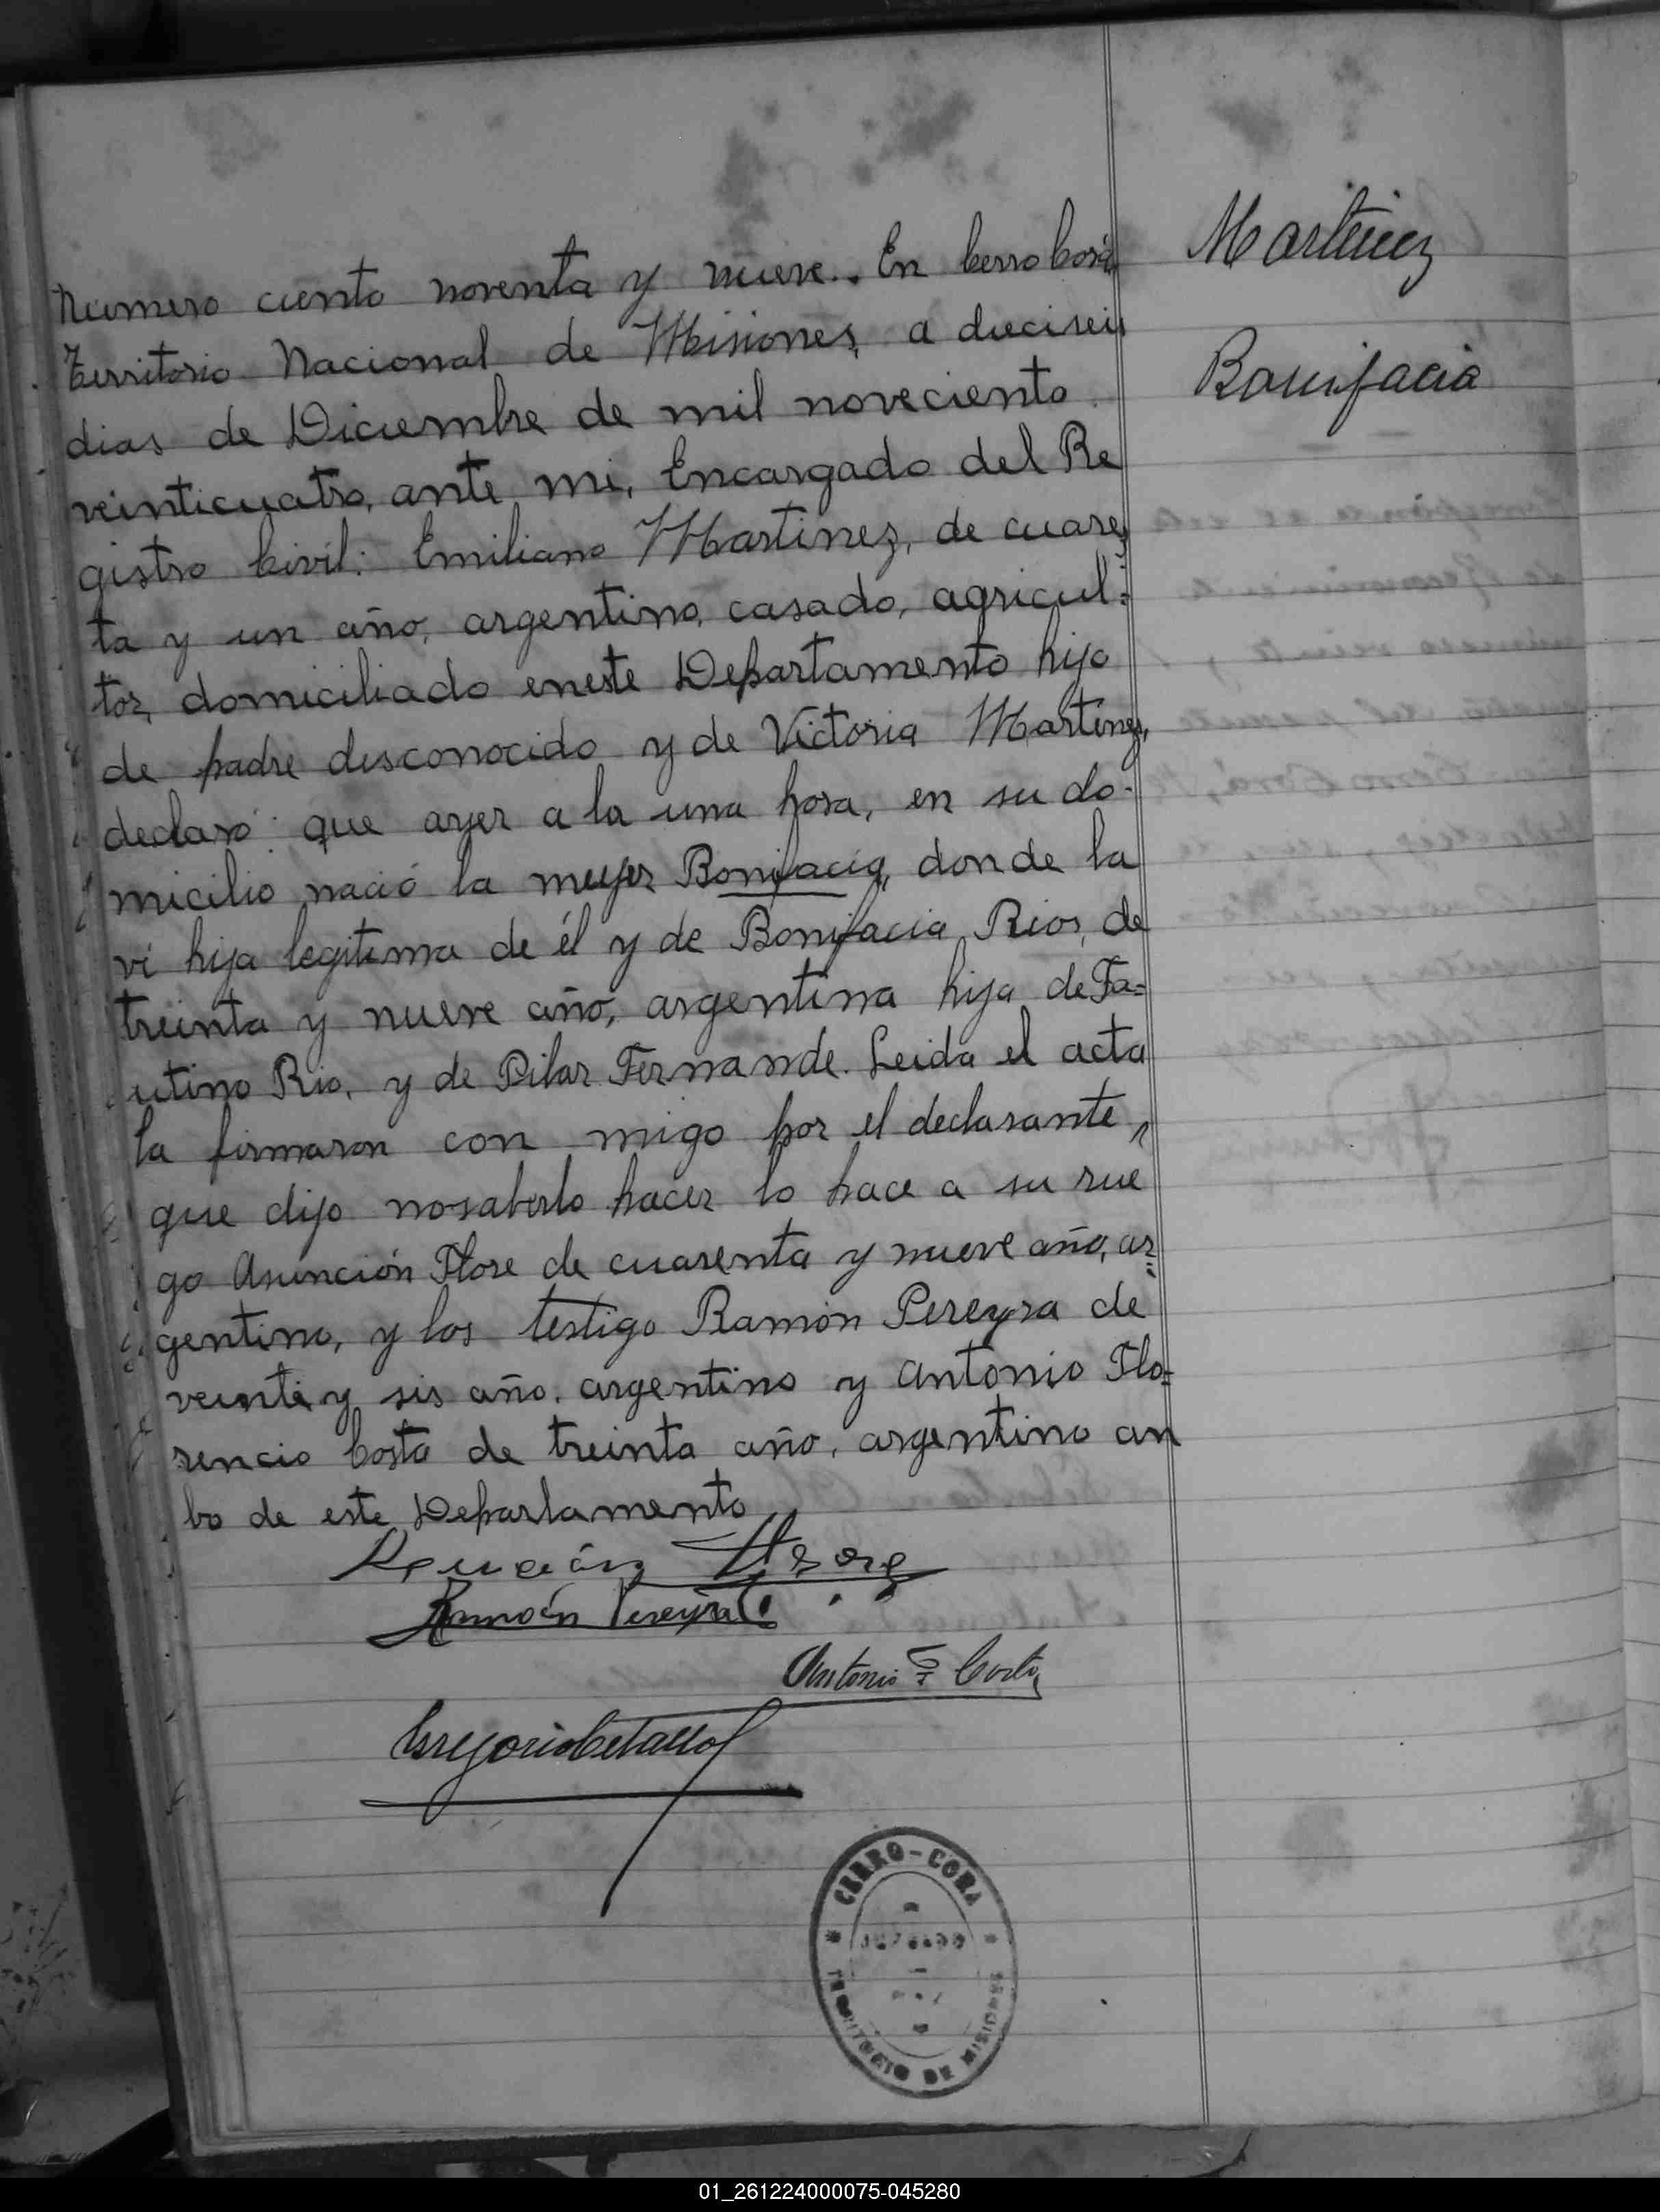 Numero ciento noventa y nueve.. En Cerro Corá
Territorio Nacional de Misiones, a dieciseis
dias de Diciembre de mil noveciento
veinticuatro, ante mi, Encargado del Re
gistro Civil: Emiliano Martinez, de cuaren
ta y un año, argentino, casado, agricul=
tor, domiciliado eneste Departamento hijo
de padre desconocido y de Victoria Martinez,
declaró: que ayer a la una hora, en su do-
micilio nació la mujer Bonifacia, donde la
vi hija legitima de él y de Bonifacia Rios, de
treinta y nueve año, argentina hija de Fa=
utino Rio, y de Pilar Fernande. Leida el acta
la firmaron con migo por el declarante,
que dijo nosaberlo hacer lo hace a su rue
go Asunción Flore de cuarenta y nueve año, ar=
gentino, y los testigo Ramón Pereyra de
veinte y sis año. argentino y Antonio Flo=
rencio Costa de treinta año, argentino an
bo de este Departamento
Ramón Pereyra
Antonio F Costa
Martinez
Bonifacia
CERRO-CORA
JUZGADO
TERRITORIO DE MISIONES
01_261224000075-045280